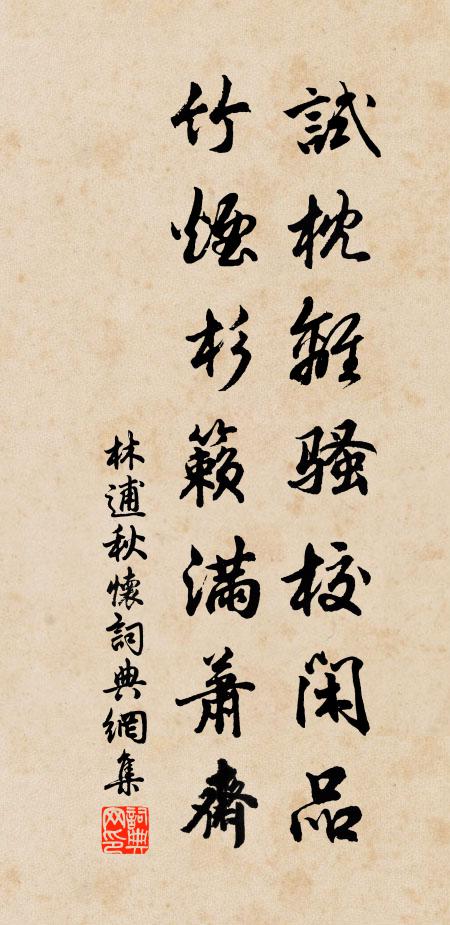 試枕離騷校閑品
竹煙杉籟滿蕭齋
林逋秋懷詞典網集
詞典網印